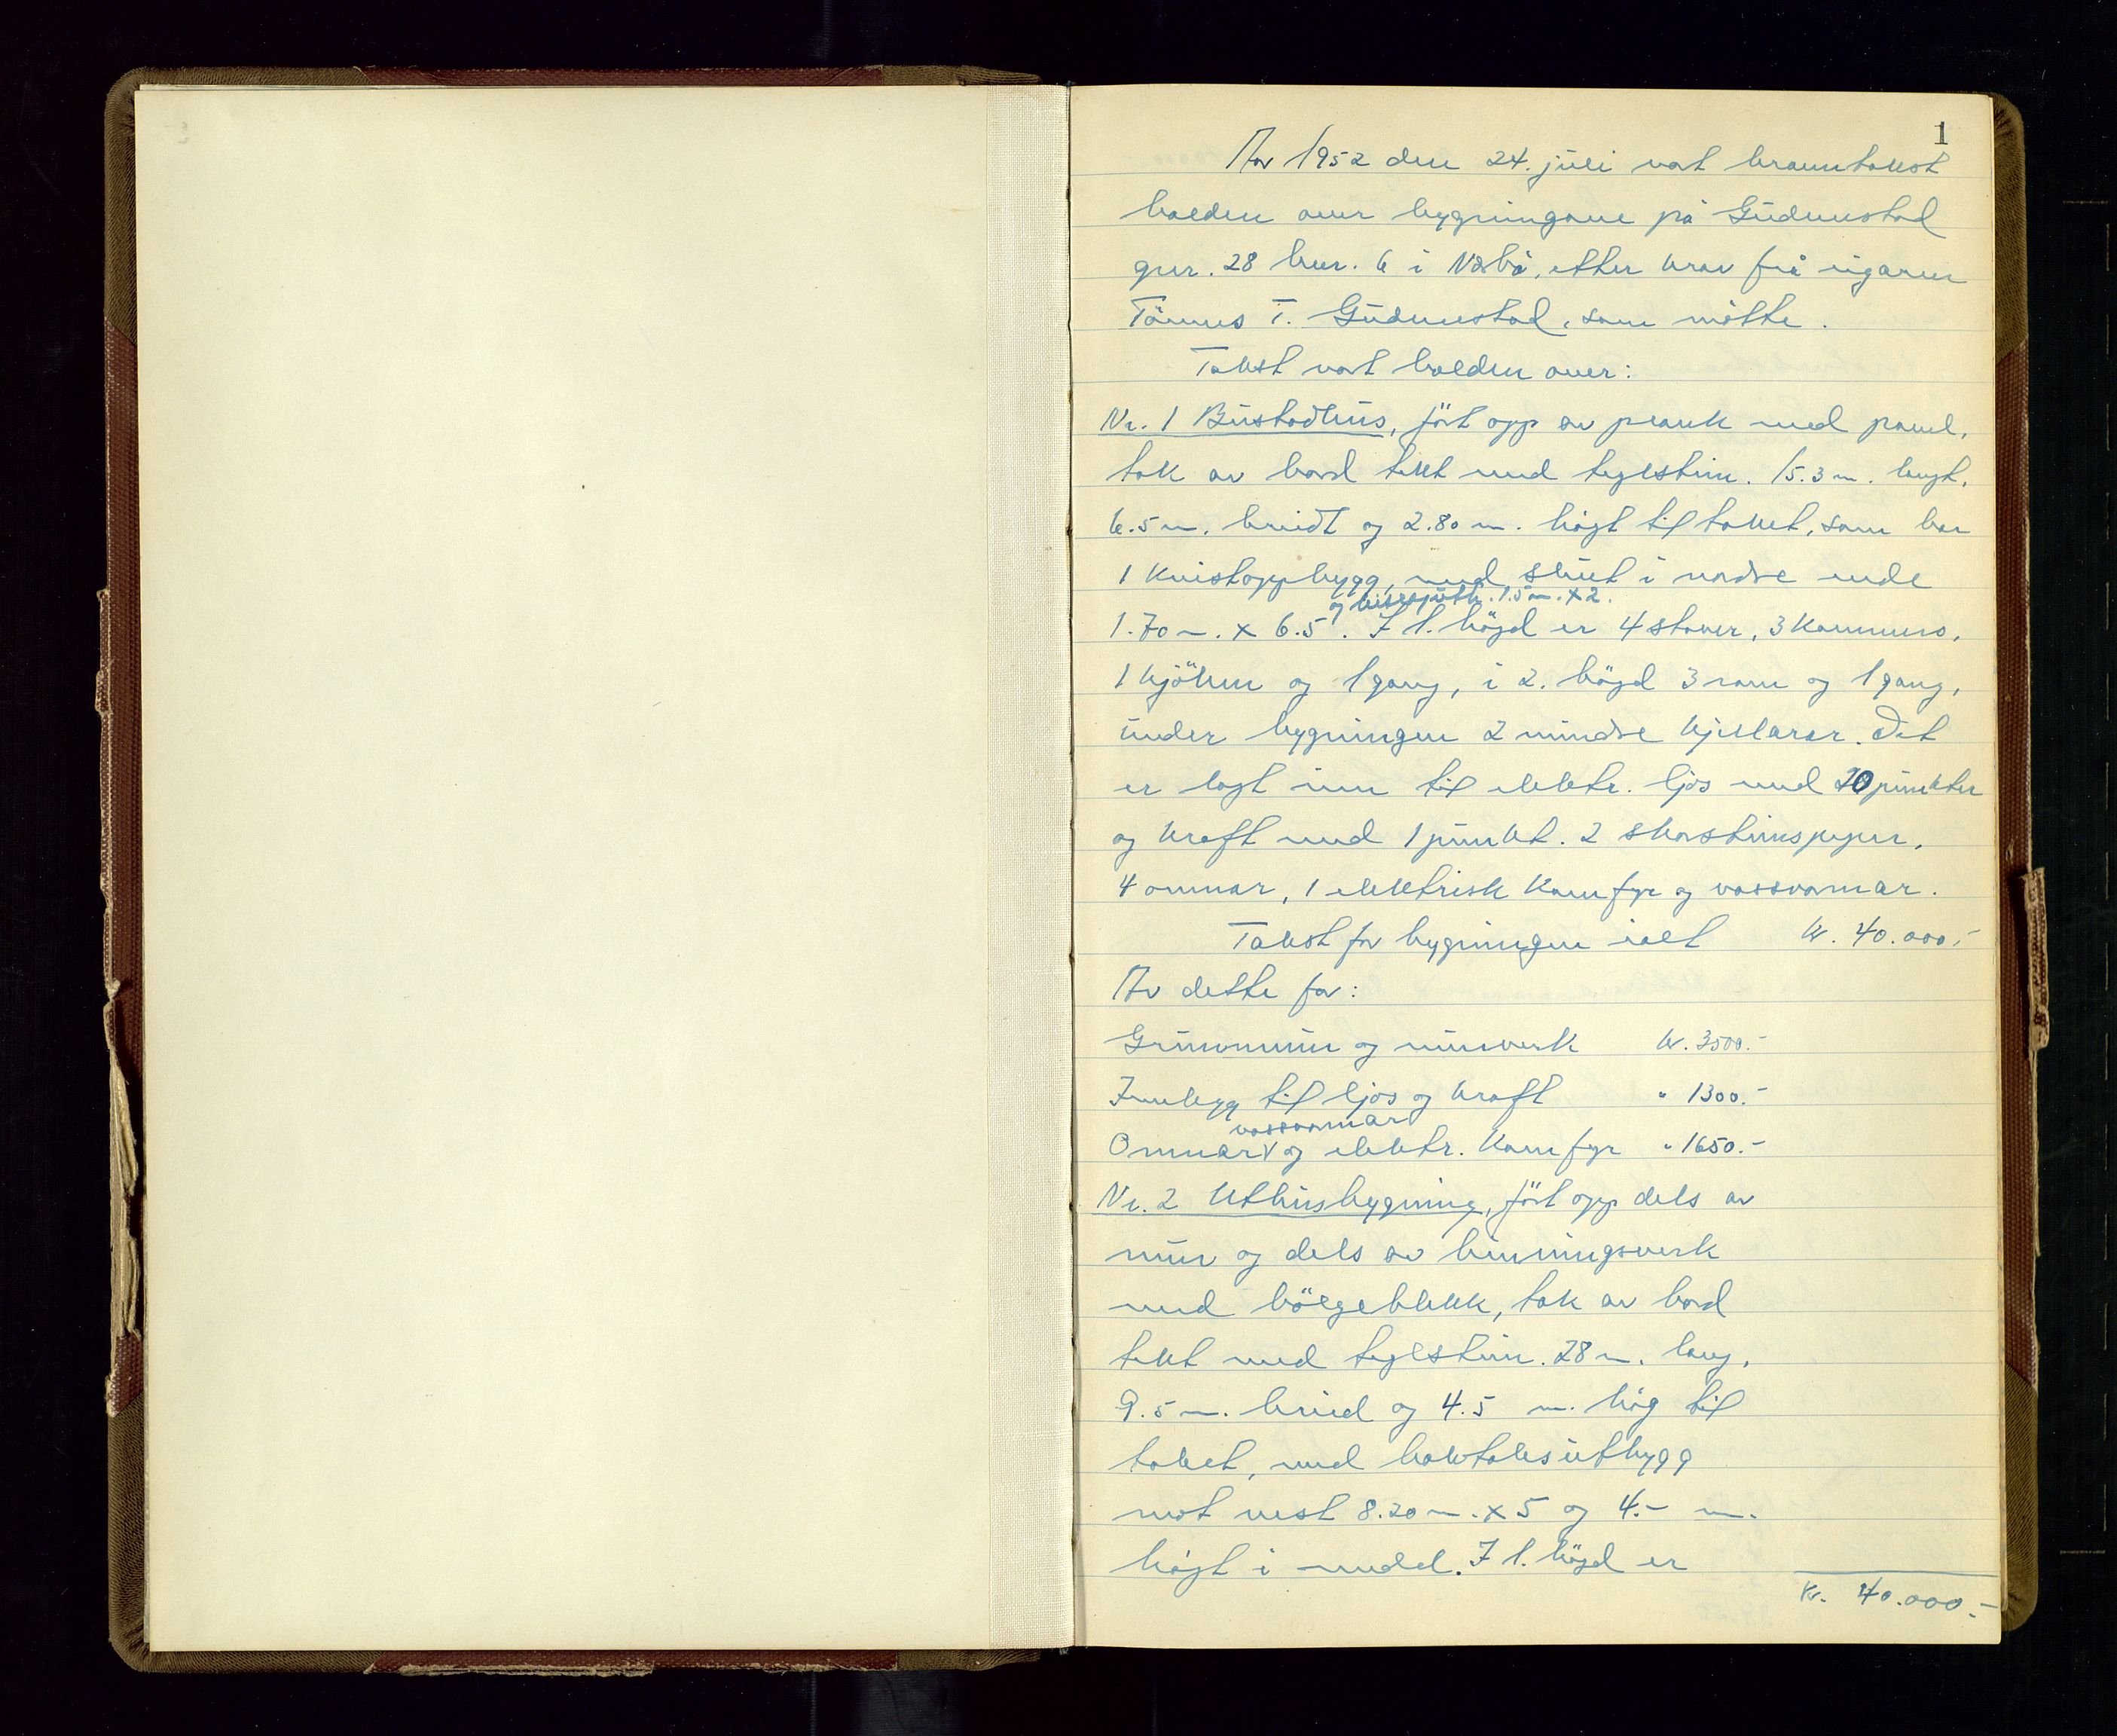 1
År 1952 den 24. juli vart branntakst
halden over bygningane på Gudmestad
gnr. 28 bnr. 6 i Nærbø, etter krav frå eigaren
Tønnes T. Gudmestad, som møtte.
Takst vart halden over:
Nr. 1 Bustadhus, ført opp av plank med panel,
tak av bord tekt med teglstein. 15.3 m. langt,
6.5 m. breidt og 2.80 m. høgt til taket, som har
1 kvistoppbygg, med skut i nordre ende
og 1.5 m. x 2.
1.70 m. x 6.5. I 1. høgd er 4 stover, 3 kammers,
1 kjøken og 1 gang, i 2. høgd 3 rom og 1 gang,
under bygningen 2 mindre kjellarar. Det
er lagt inn til elektr. ljos med 20 punkter
og kraft med 1 punkt. 2 skorsteinspiper,
4 omnar, 1 elektrisk komfyr og vassvarmar.
Takst for bygningen ialt kr. 40.000.-
Av dette for:
Grunnmur og murverk kr. 3500.-
Innlegg til ljos og kraft " 1300.-
vassvarmar
Omnar V og elektr. komfyr " 1650.-
Nr. 2 Uthusbygning, ført opp dels av
mur og dels av binningsverk
med bölgeblekk, tak av bord
tekt med teglstein. 28 m. lang,
9.5 m. breid og 4.5 m. høg til
taket, med halvtaksutbygg
mot vest 8.20 m. x 5 og 4.- m.
høgt i medel. I 1. høgd er
Kr. 40.000.-